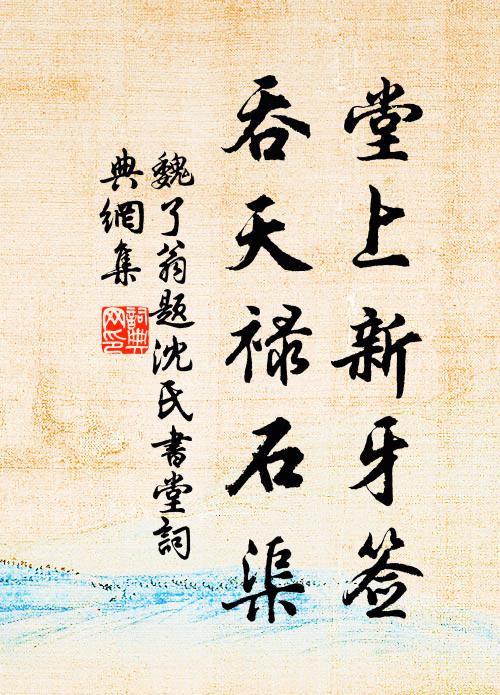 堂上新牙签
吞天禄石渠
魏了翁题沈氏書堂詞
典網集
詞典
网印